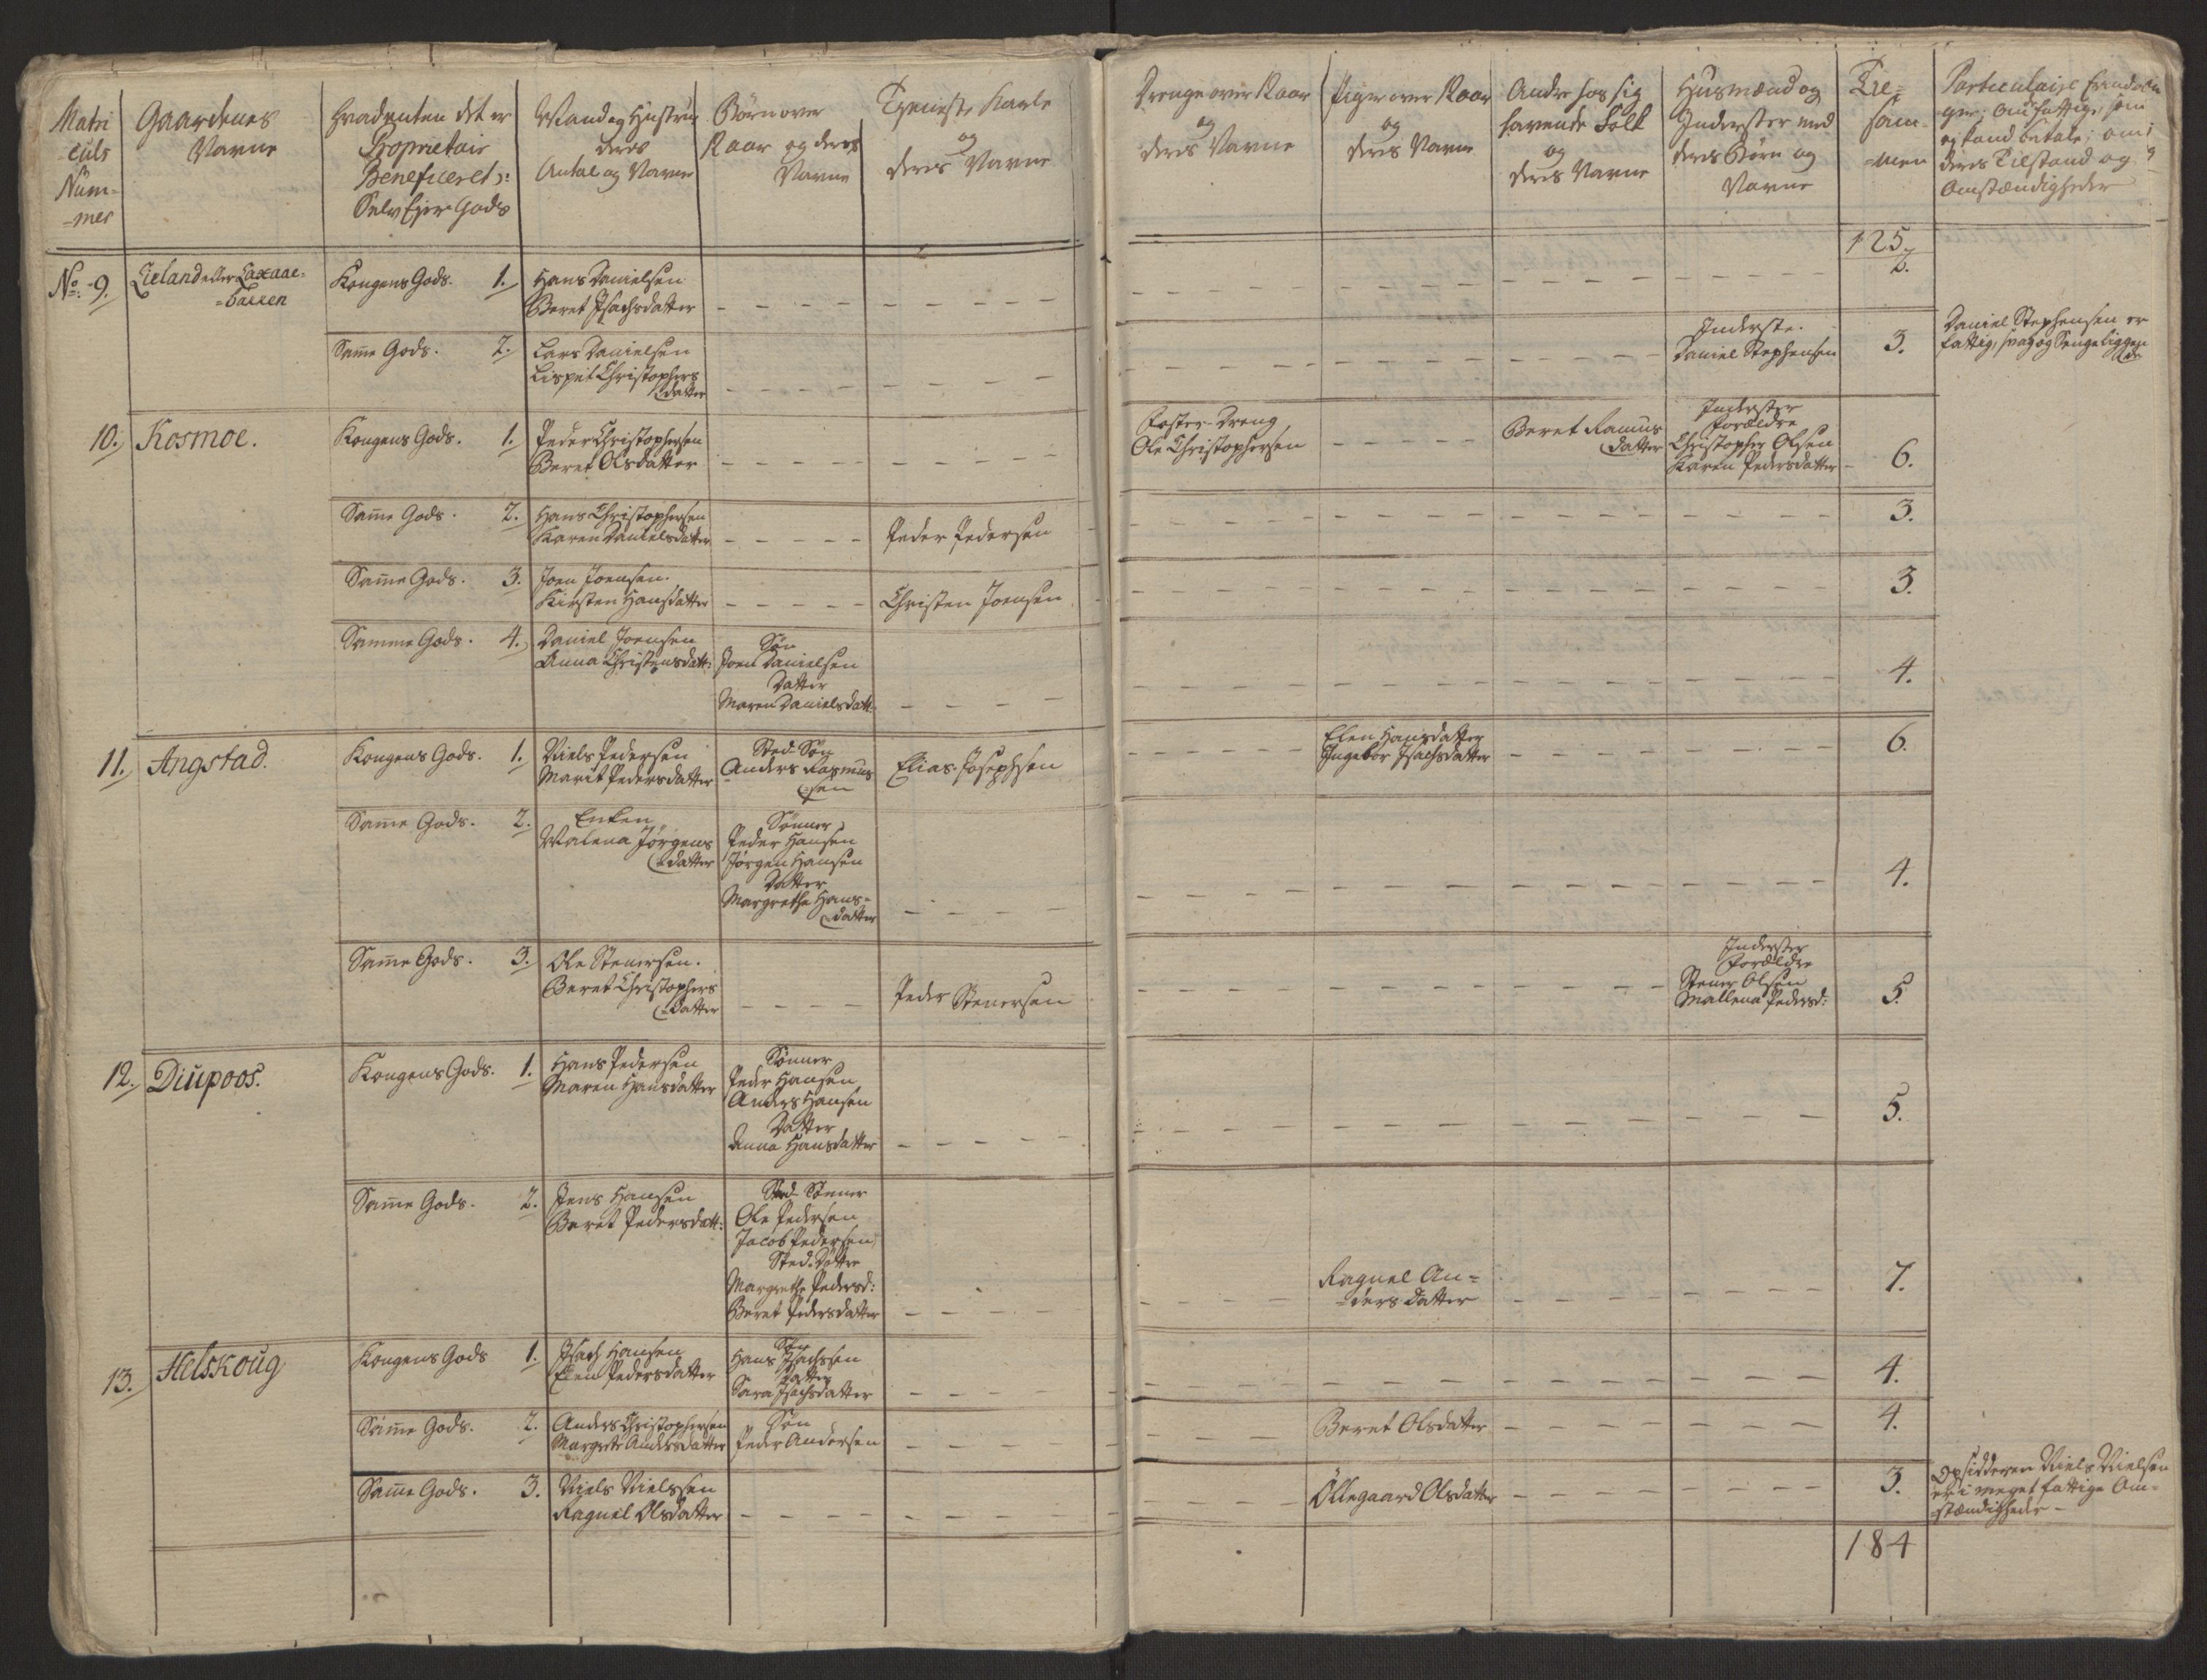 Matri
culs
Num-
-mer
Gaardenes
Navne
Hvadenten det er
Proprietair
Beneficeret
Selv Ejer Gods
Mand og Hustru
deres
Antal og Navne
Børn over
Aar og deres
Navne
Tieneste Karle
og
deres Navne
Drenge over Aar
og
deres Navne
Piger over Aar
og
deres Navne
Andre hos sig
havende Folk
og
deres Navne
Husmænd og
Inderster med
deres Børn og
Navne
Til-
sam-
-men
deres Tilstand og
Omstændigheder
125.
No. 9.
Lieland eller Laxaae-
=backen
Kongens Gods. 1.
Hans Danielsen
Beret Isachsdatter
2.
Samme Gods. 2.
Lars Danielsen
Lispet Christophers
datter
Inderste.
Daniel Stephensen
3.
Daniel Stephensen er
fattig, svag og Sengeliggen
de
10.
Kosmoe.
Kongens Gods. 1.
Peder Christophersen
Beret Olsdatter
Foster-Dreng
Ole Christophersen
Beret Ramus
datter
Inderster
Forældre
Christopher Olsen
Karen Pedersdatter
6.
Samme Gods. 2.
Hans Christophersen
Karen Danielsdatter
Peder Pedersen
3.
Samme Gods. 3.
Joen Joensen.
Kirsten Hansdatter
Christen Joensen
3.
Samme Gods. 4.
Daniel Joensen
Anna Christensdatt:
Søn
Joen Danielsen
Datter
Maren Danielsdatt:
4.
11.
Angstad.
Kongens Gods. 1.
Niels Pedersen
Marit Pedersdatter
Sted-Søn
Anders Rasmus
sen
Elias Josephsen
Elen Hansdatter
Ingebor Isachsdatter
6.
Samme Gods. 2.
Enken
Malena Jørgens
datter
Sønner
Peder Hansen
Jørgen Hansen
Datter
Margrethe Hans-
datter
4.
Samme Gods. 3.
Ole Stenersen.
Beret Christophers
datter
Peder Stenersen
Inderster
Forældre
Stener Olsen
Mallena Pedersd:
5.
12.
Diupoos.
Kongens Gods. 1.
Hans Pedersen
Maren Hansdatter
Sønner
Peder Hansen
Anders Hansen
Datter
Anna Hansdatter
5.
Samme Gods. 2.
Jens Hansen
Beret Pedersdatt:
Sted-Sønner
Ole Pedersen
Jacob Pedersen
Sted-Døttre
Margrethe Pedersd:
Beret Pedersdatter
Raguel An-
=ders datter
7.
13.
Helskoug
Kongens Gods 1.
Isach Hansen
Elen Pedersdatter
Søn
Hans Isachsen
Datter
Sara Isachsdatter
4.
Samme Gods. 2.
Anders Christophersen
Margrete Andersdatter
Søn
Peder Andersen
Beret Olsdatter
4.
Samme Gods. 3.
Niels Nielssen
Raguel Olsdatter
Ollegaard Olsdatter
3.
Opsidderen Niels Nielsen
er i meget fattige Om-
=stændigheder
184